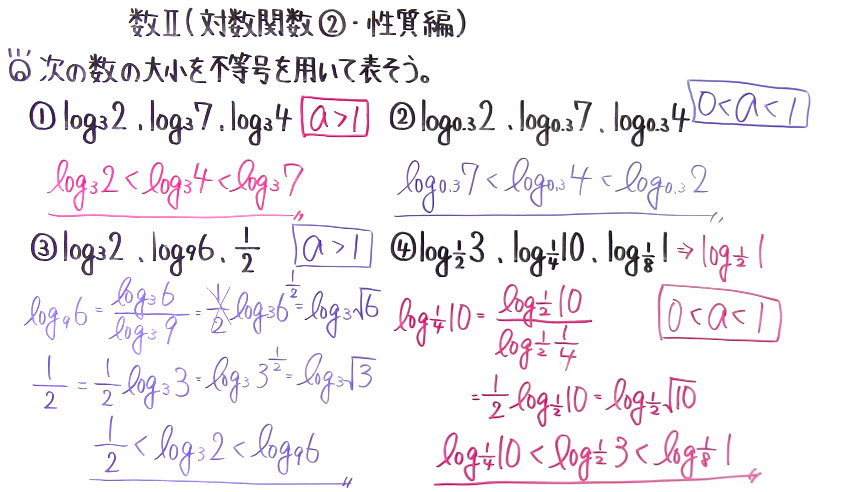 数Ⅱ(対数関数②・性質編)
◎次の数の大小を不等号を用いて表そう。
① log₃2、log₃7、log₃4 a>1
log₃2 < log₃4 < log₃7
② log₀.₃2、log₀.₃7、log₀.₃4 0<a<1
log₀.₃7 < log₀.₃4 < log₀.₃2
③ log₃2、log₉6、1/2 a>1
log₉6 = log₃6/log₃9 = 1/2 log₃6^(1/2) = log₃√6
1/2 = 1/2 log₃3 = log₃3^(1/2) = log₃√3
1/2 < log₃2 < log₉6
④ log_(1/2)3、log_(1/4)10、log_(1/8)1 ⇒ log_(1/2)1
log_(1/4)10 = log_(1/2)10/log_(1/2)(1/4) 0<a<1
= 1/2 log_(1/2)10 = log_(1/2)√10
log_(1/4)10 < log_(1/2)3 < log_(1/8)1